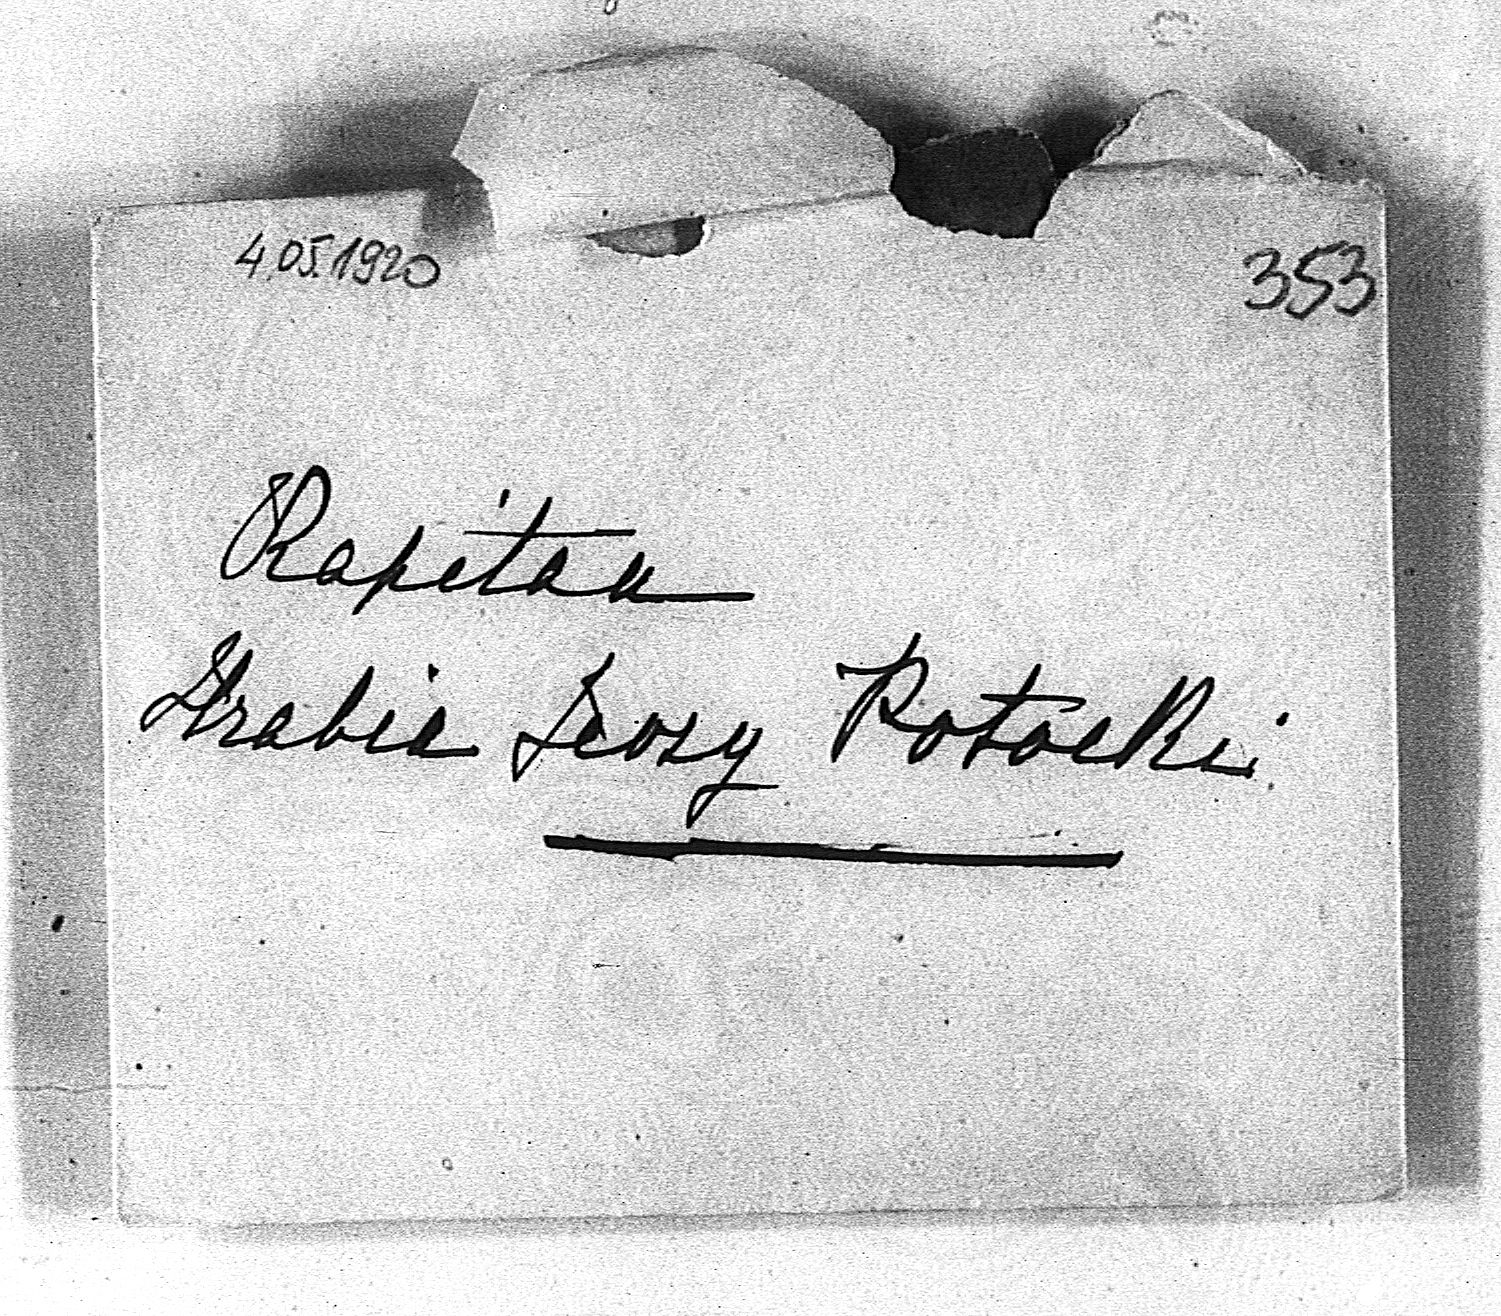 4.05.1920
353
Kapitan
Hrabia Jerzy Potocki